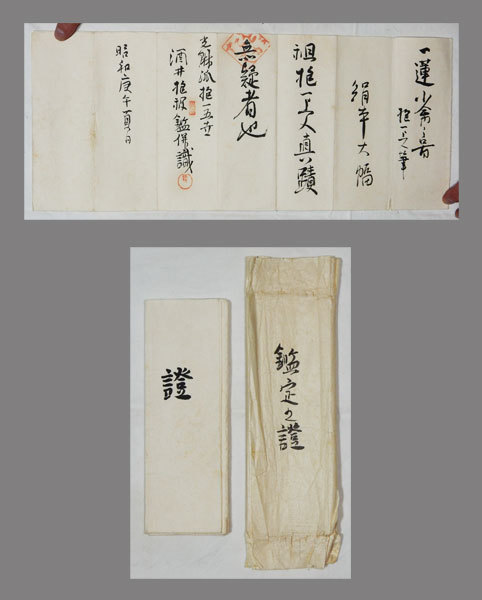 一蓮少斎主君
抱一上人筆
絹本大幅
祖抱一上人真蹟
無疑者也
光琳派抱一五世
酒井抱祝鑑併識
昭和庚午
鑑定之證
證